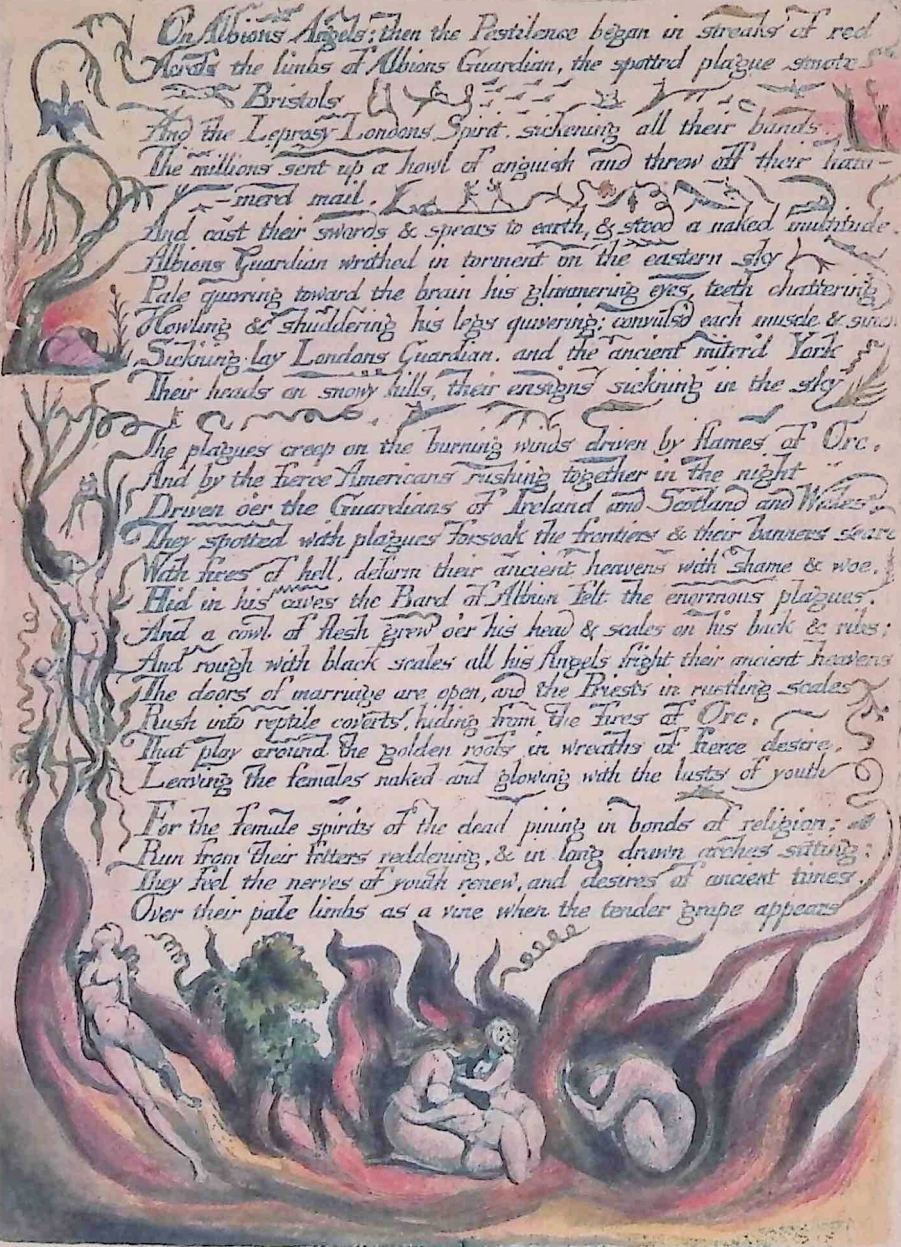 On Albions Angels: then the Pestilence began in streaks of red
Across the limbs of Albions Guardian, the spotted plague smote
Bristols
And the Leprosy Londons Spirit, sickening all their bands:
The millions sent up a howl of anguish and threw off their ham-
-merd mail,
And cast their swords & spears to earth, & stood a naked multitude.
Albions Guardian writhed in torment on the eastern sky
Pale quivring toward the brain his glimmering eyes, teeth chattering
Howling & shuddering his legs quivering; convuls'd each muscle & sinew
Sick'ning lay Londons Guardian, and the ancient miter'd York
Their heads on snowy hills, their ensigns sick'ning in the sky
The plagues creep on the burning winds driven by flames of Orc,
And by the fierce Americans rushing together in the night
Driven o'er the Guardians of Ireland and Scotland and Wales
They spotted with plagues forsook the frontiers & their banners seard
With fires of hell, deform their ancient heavens with shame & woe.
Hid in his caves the Bard of Albion felt the enormous plagues.
And a cowl of flesh grew o'er his head & scales on his back & ribs;
And rough with black scales all his Angels fright their ancient heavens
The doors of marriage are open, and the Priests in rustling scales
Rush into reptile coverts, hiding from the fires of Orc,
That play around the golden roofs in wreaths of fierce desire,
Leaving the females naked and glowing with the lusts of youth
For the female spirits of the dead pining in bonds of religion;
Run from their fetters reddening, & in long drawn arches sitting:
They feel the nerves of youth renew, and desires of ancient times,
Over their pale limbs as a vine when the tender grape appears